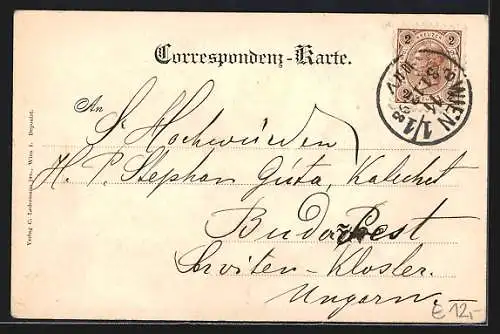 Correspondenz-Karte.
2 KREUZER 2
WIEN 1/1
An
S. Hochwürden
H. P. Stephan Guta, Katechet
Budapest
Serviten-Kloster.
Ungarn.
Verlag C. Ledermann jun., Wien I. Deponirt.
€ 12,-